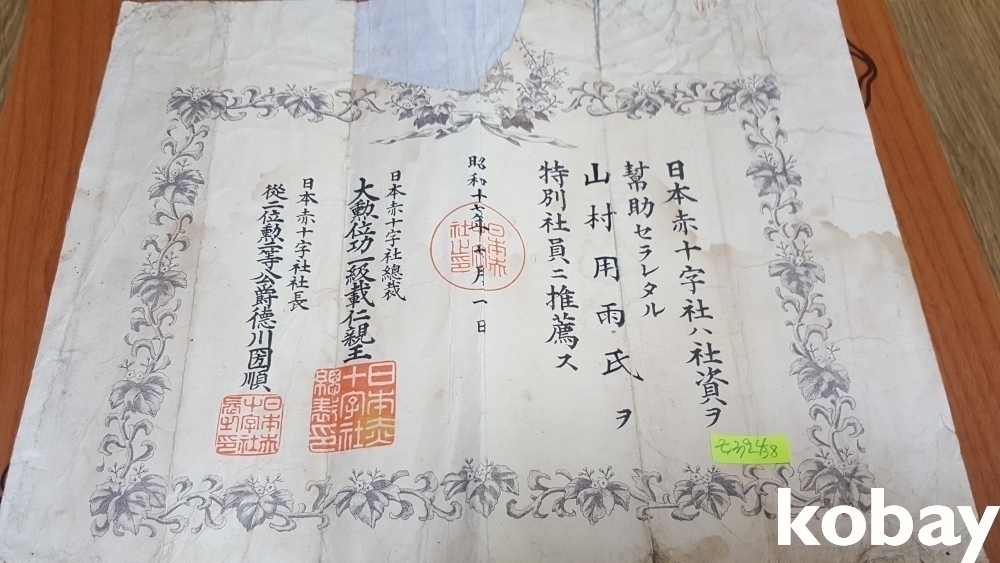 日本赤十字社ハ社資ヲ
幇助セラレタル
山村用雨氏ヲ
特別社員ニ推薦ス
昭和十六年十一月一日
日本赤十字社總裁
大勲位功一級載仁親王
日本赤十字社社長
從二位勲一等公爵徳川圀順
日本赤十字社之印
日本赤十字社總裁印
日本赤十字社長之印
kobay